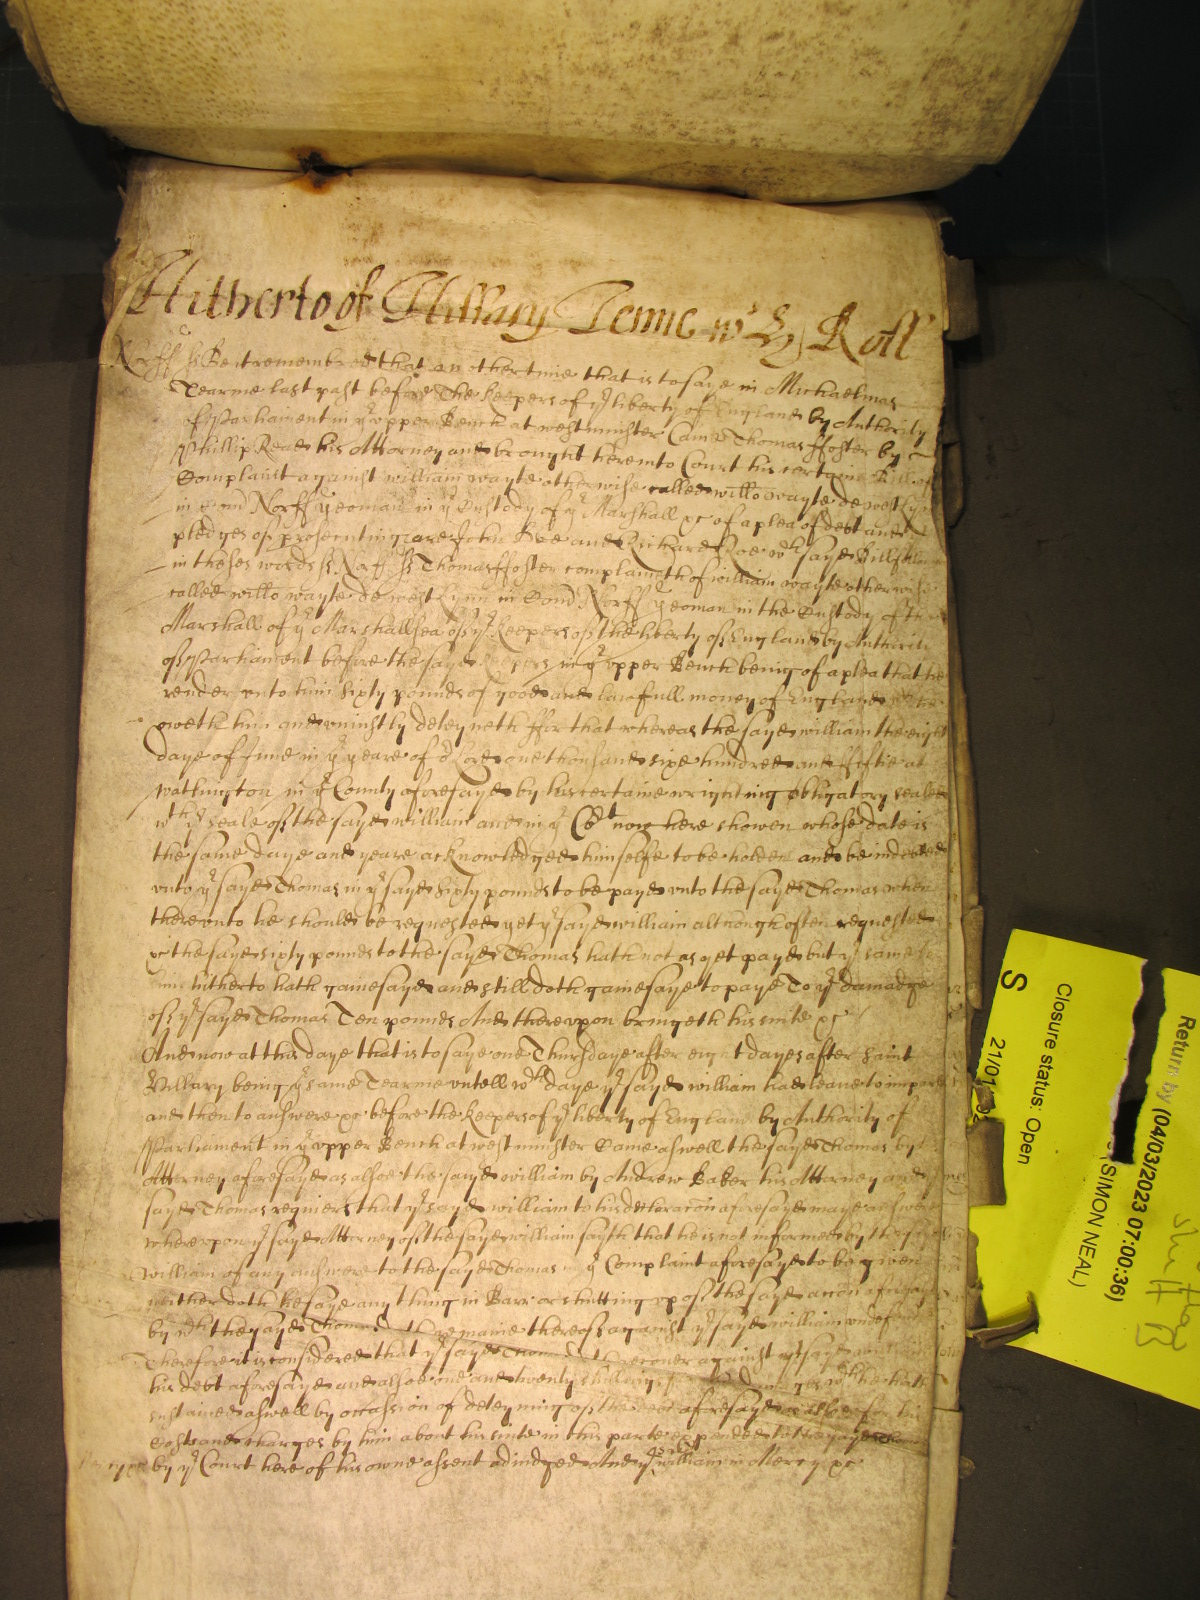 Hitherto of Hillary Terme wth Roll
Norff ss Be it remembred that an other time that is to saye in Michaelmas
Tearme last past before The Keepers of ye liberty of England by Authority
of Parliament in ye vpper Bench at westminster Came Thomas ffoster by
Phillip Read his Attorney and brought here into Court his certaine Bill of
Complaint against william wayte otherwise called willm wayte de west
in Com Norff yeoman in ye Custody of ye Marshall &c of a plea of debt and
pledges of prosecuting are John Doe and Richard Roe wch sayd Bill
in theses words ss Norff ss Thomas ffoster complaineth of william wayte otherwise
called willm wayte de west Lynn in Comd Norff yeoman in the Custody of the
Marshall of ye Marshallsea of ye Keepers of the liberty of England by Authoritie
of Parliament before the sayd Keepers in ye vpper Bench being of a plea that he
render vnto him sixty pounds of good and lawfull money of England wch he
oweth him and uniustly deteyneth ffor that whereas the sayd william the eight
daye of June in ye yeare of or Lord one thousand sixe hundred and fiftie at
watlington in ye County aforesayd by his certaine wrighting obligatory sealed
wth ye seale of the sayd william and in ye Cort now here showen whose date is
the same daye and yeare acknowledged himselfe to be holden and be indebted
vnto ye sayd Thomas in ye sayd sixty pounds to be payd vnto the sayd Thomas when
therevnto he should be requested yet ye sayd william although often requested
&c the sayd sixty pounds to the sayd Thomas hath not as yet payd but ye same to
him hitherto hath gamesayd and still doth gamesaye to paye To ye damadge
of ye sayd Thomas Ten pounds And therevpon bringeth his suite &c
And now at this daye that is to saye one Thursdaye after eight dayes after Saint
Hillary being ye same Tearme vntell wch daye ye sayd william had leave to imparle
and then to answere &c before the Keepers of ye liberty of England by Authority of
Parliament in ye vpper Bench at westminster Came aswell the sayd Thomas by his
Attorney aforesayd as alsoe the sayd william by Andrew Baker his Attorney and ye
sayd Thomas requiers that ye sayd william to his declaracon aforesayd maye answere
wherevpon ye sayd Attorney of the sayd william sayth that he is not informed by the sayd
william of any answere to the sayd Thomas in ye Complaint aforesayd to be given
neither doth he saye any thing in Barr or shutting vp of the sayd accon aforesayd
by wch the sayd Thomas remaine thereof against ye sayd william vndefended
Therefore it is considered that ye sayd Thomas recover against ye sayd william
his debt aforesayd and alsoe one and twenty shillings for damages wch he hath
sustained aswell by occassion of deteyning of the debt aforesayd as alsoe for his
Costs and charges by him about his suite in this parte expended to the sayd Thomas
by ye Court here of his owne assent adiudged And ye sayd william in Mercy &c
Closure status: Open
S
21/01
Return by (04/03/2023 07:00:36)
(SIMON NEAL)